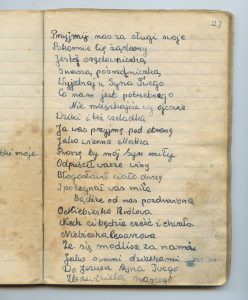 23
Przyjmij nas za sługi swoje
Pokornie Cię żądamy
Jesteś orędowniczką
Swoszą pośredniczką
Wyjednaj u Syna Twego
Co nam jest potrzebnego
Nie mieszkajcie wy ojcowie
Dziatki i też czeladka
Ja was przyjmę pod obronę
Jako wierna Matka
Proszę by mój Syn miły
Odpuścił wasze winy
Błogosławił ciało duszy
I pożegnał was mile
Bądźże od nas pozdrowiona
O Niebieska Królowa
Niech ci będzie cześć i chwała
Niebieska Cesarzowa
Że się modlisz za nami
Jako swemi dziatkami
Do Jezusa Syna Twego
Zbawiciela naszego
moje